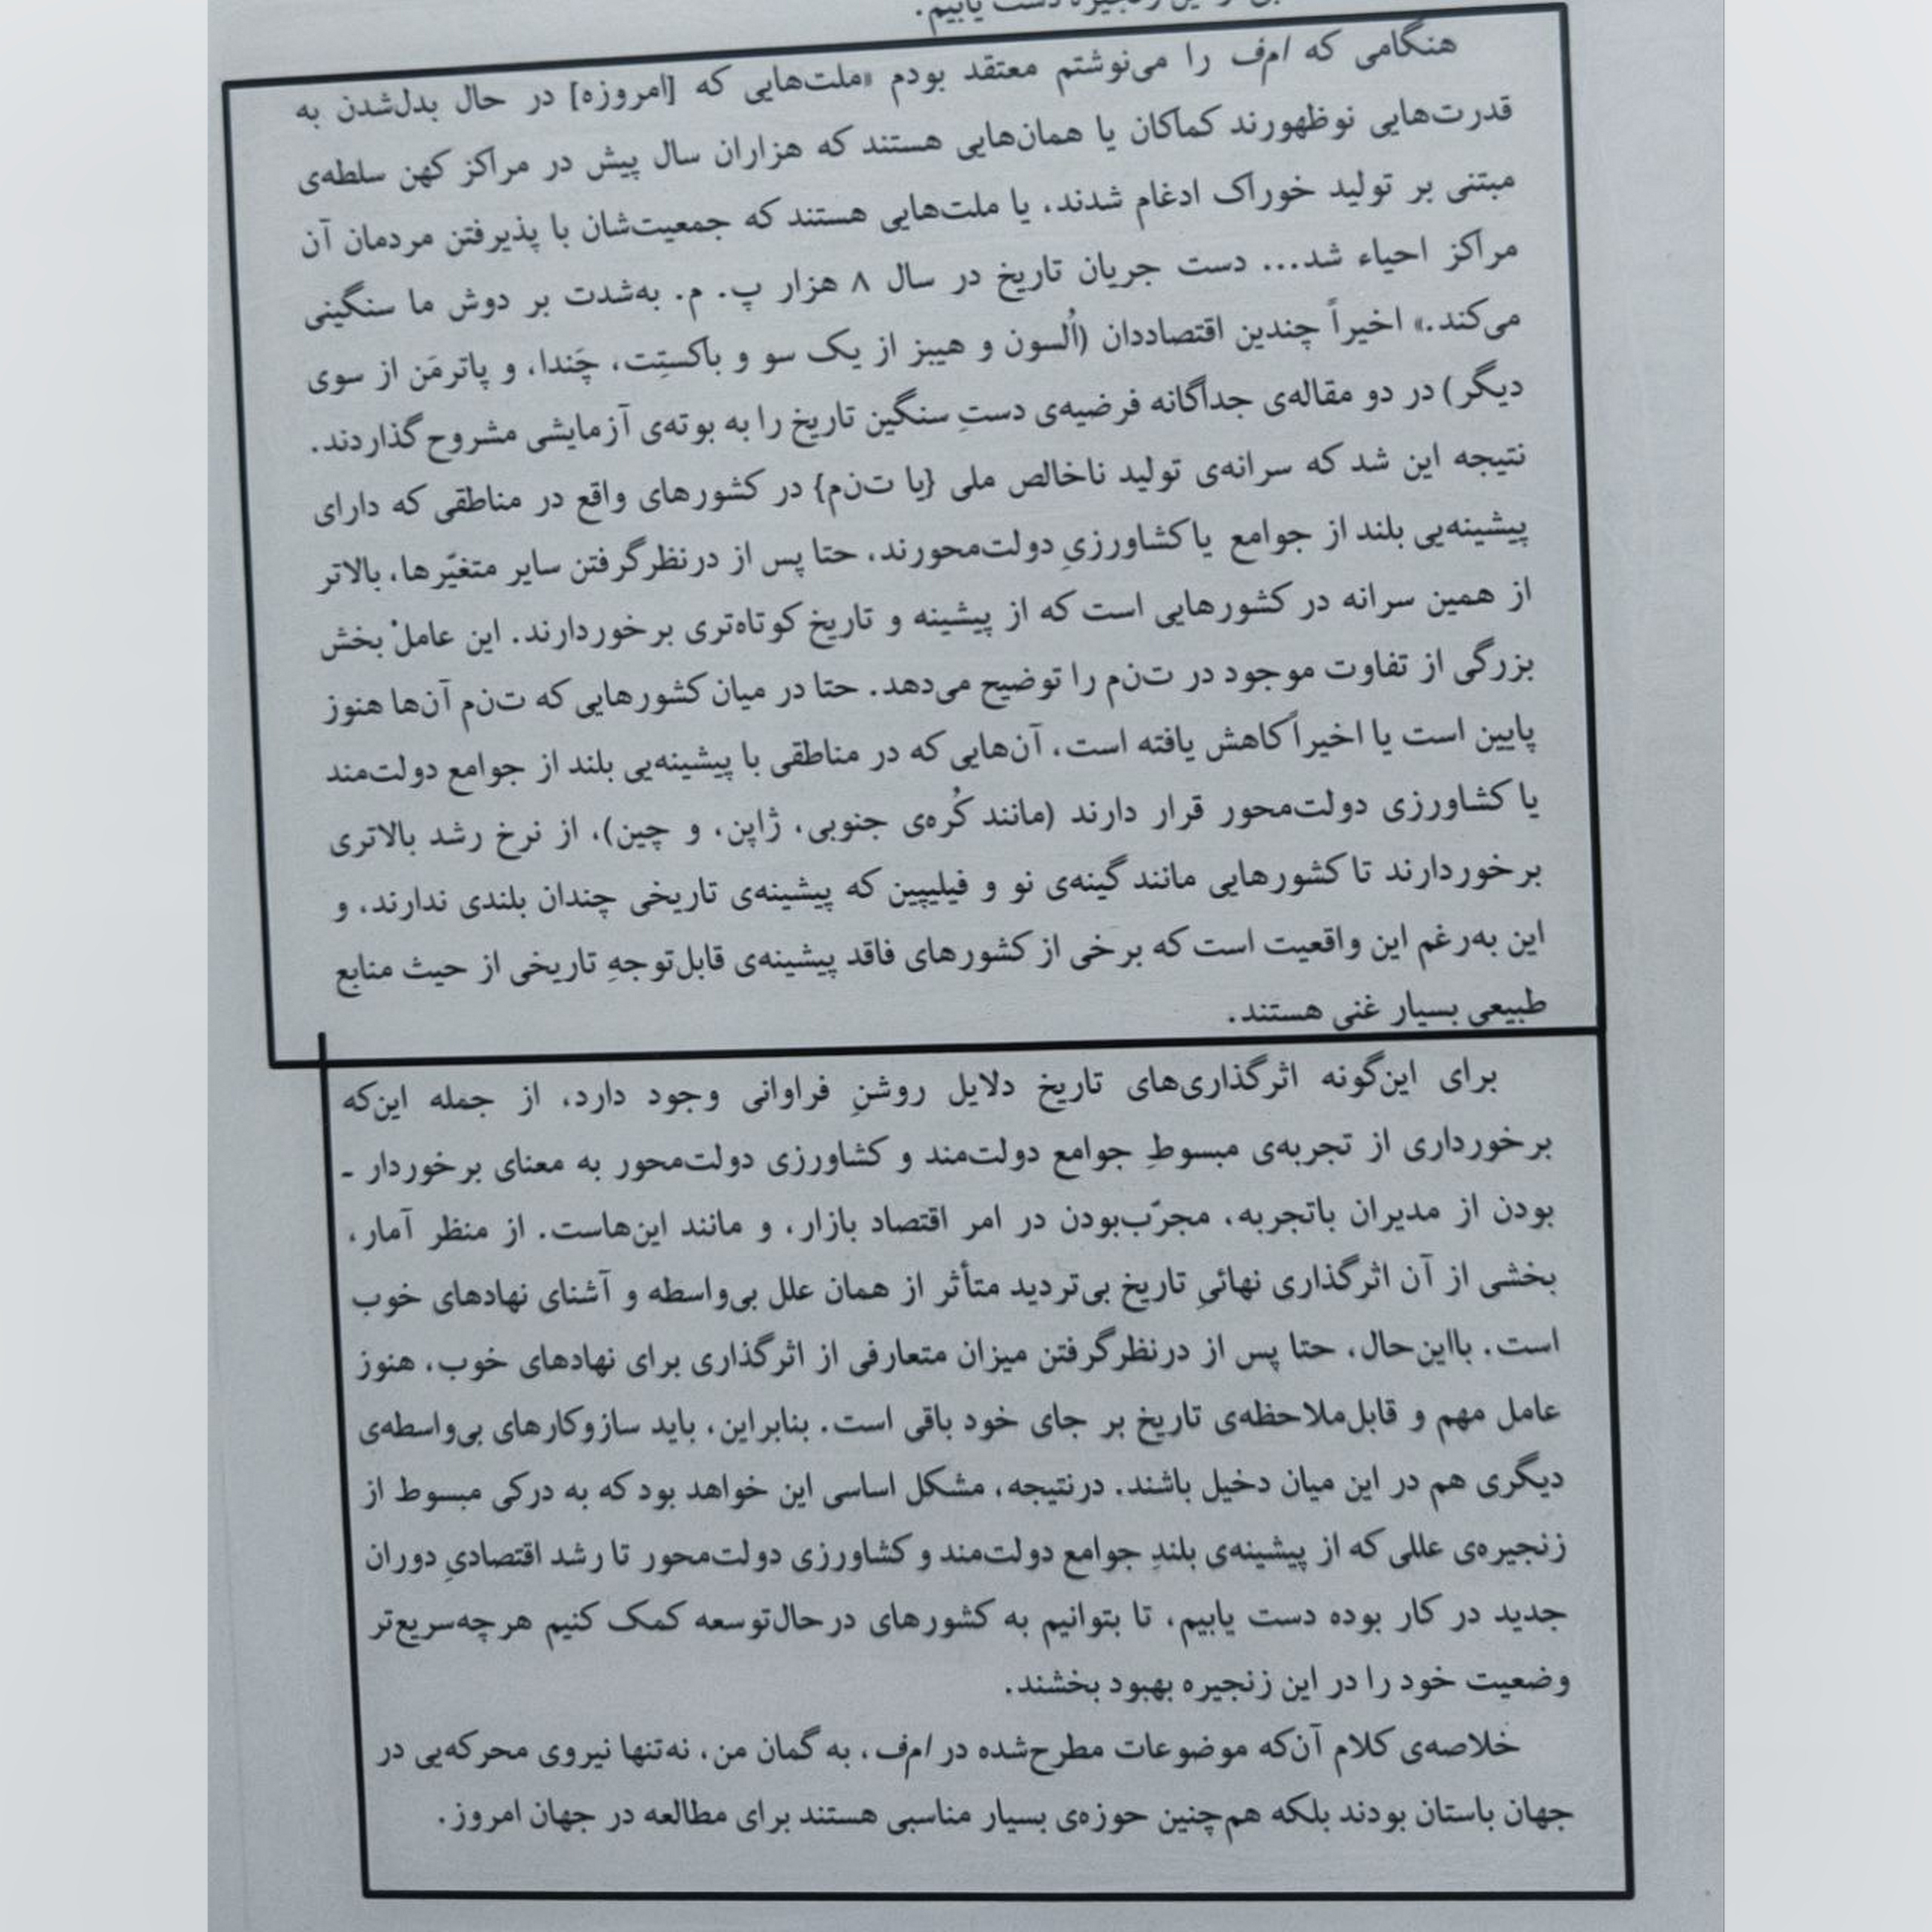 هنگامی که ا‌م‌ف را می‌نوشتم معتقد بودم «ملت‌هایی که [امروزه] در حال بدل‌شدن به
قدرت‌هایی نوظهورند کماکان یا همان‌هایی هستند که هزاران سال پیش در مراکز کهن سلطه‌ی
مبتنی بر تولید خوراک ادغام شدند، یا ملت‌هایی هستند که جمعیت‌شان با پذیرفتن مردمان آن
مراکز احیاء شد... دست جریان تاریخ در سال ۸ هزار پ. م. به‌شدت بر دوش ما سنگینی
می‌کند.» اخیراً چندین اقتصاددان (اُلسون و هیبز از یک سو و باکستِت، چَندا، و پاترمَن از سوی
دیگر) در دو مقاله‌ی جداگانه فرضیه‌ی دستِ سنگین تاریخ را به بوته‌ی آزمایشی مشروح گذاردند.
نتیجه این شد که سرانه‌ی تولید ناخالص ملی {یا ت‌ن‌م} در کشورهای واقع در مناطقی که دارای
پیشینه‌یی بلند از جوامع یا کشاورزیِ دولت‌محورند، حتا پس از درنظرگرفتن سایر متغیّرها، بالاتر
از همین سرانه در کشورهایی است که از پیشینه و تاریخ کوتاه‌تری برخوردارند. این عاملْ بخش
بزرگی از تفاوت موجود در ت‌ن‌م را توضیح می‌دهد. حتا در میان کشورهایی که ت‌ن‌م آن‌ها هنوز
پایین است یا اخیراً کاهش یافته است، آن‌هایی که در مناطقی با پیشینه‌یی بلند از جوامع دولت‌مند
یا کشاورزی دولت‌محور قرار دارند (مانند کُره‌ی جنوبی، ژاپن، و چین)، از نرخ رشد بالاتری
برخوردارند تا کشورهایی مانند گینه‌ی نو و فیلیپین که پیشینه‌ی تاریخی چندان بلندی ندارند، و
این به‌رغم این واقعیت است که برخی از کشورهای فاقد پیشینه‌ی قابل‌توجهِ تاریخی از حیث منابع
طبیعی بسیار غنی هستند.
برای این‌گونه اثرگذاری‌های تاریخ دلایل روشنِ فراوانی وجود دارد، از جمله این‌که
برخورداری از تجربه‌ی مبسوطِ جوامع دولت‌مند و کشاورزی دولت‌محور به معنای برخوردار ـ
بودن از مدیران باتجربه، مجرّب‌بودن در امر اقتصاد بازار، و مانند این‌هاست. از منظر آمار،
بخشی از آن اثرگذاری نهائیِ تاریخ بی‌تردید متأثر از همان علل بی‌واسطه و آشنای نهادهای خوب
است. بااین‌حال، حتا پس از درنظرگرفتن میزان متعارفی از اثرگذاری برای نهادهای خوب، هنوز
عامل مهم و قابل‌ملاحظه‌ی تاریخ بر جای خود باقی است. بنابراین، باید سازوکارهای بی‌واسطه‌ی
دیگری هم در این میان دخیل باشند. درنتیجه، مشکل اساسی این خواهد بود که به درکی مبسوط از
زنجیره‌ی عللی که از پیشینه‌ی بلندِ جوامع دولت‌مند و کشاورزی دولت‌محور تا رشد اقتصادیِ دوران
جدید در کار بوده دست یابیم، تا بتوانیم به کشورهای درحال‌توسعه کمک کنیم هرچه‌سریع‌تر
وضعیت خود را در این زنجیره بهبود بخشند.
خلاصه‌ی کلام آن‌که موضوعات مطرح‌شده در ا‌م‌ف، به گمان من، نه‌تنها نیروی محرکه‌یی در
جهان باستان بودند بلکه هم‌چنین حوزه‌ی بسیار مناسبی هستند برای مطالعه در جهان امروز.